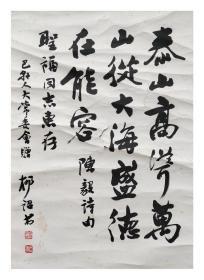 泰山高聳萬
山從大海盛德
在能容 陳毅詩句
聖福同志惠存
人大常委會贈